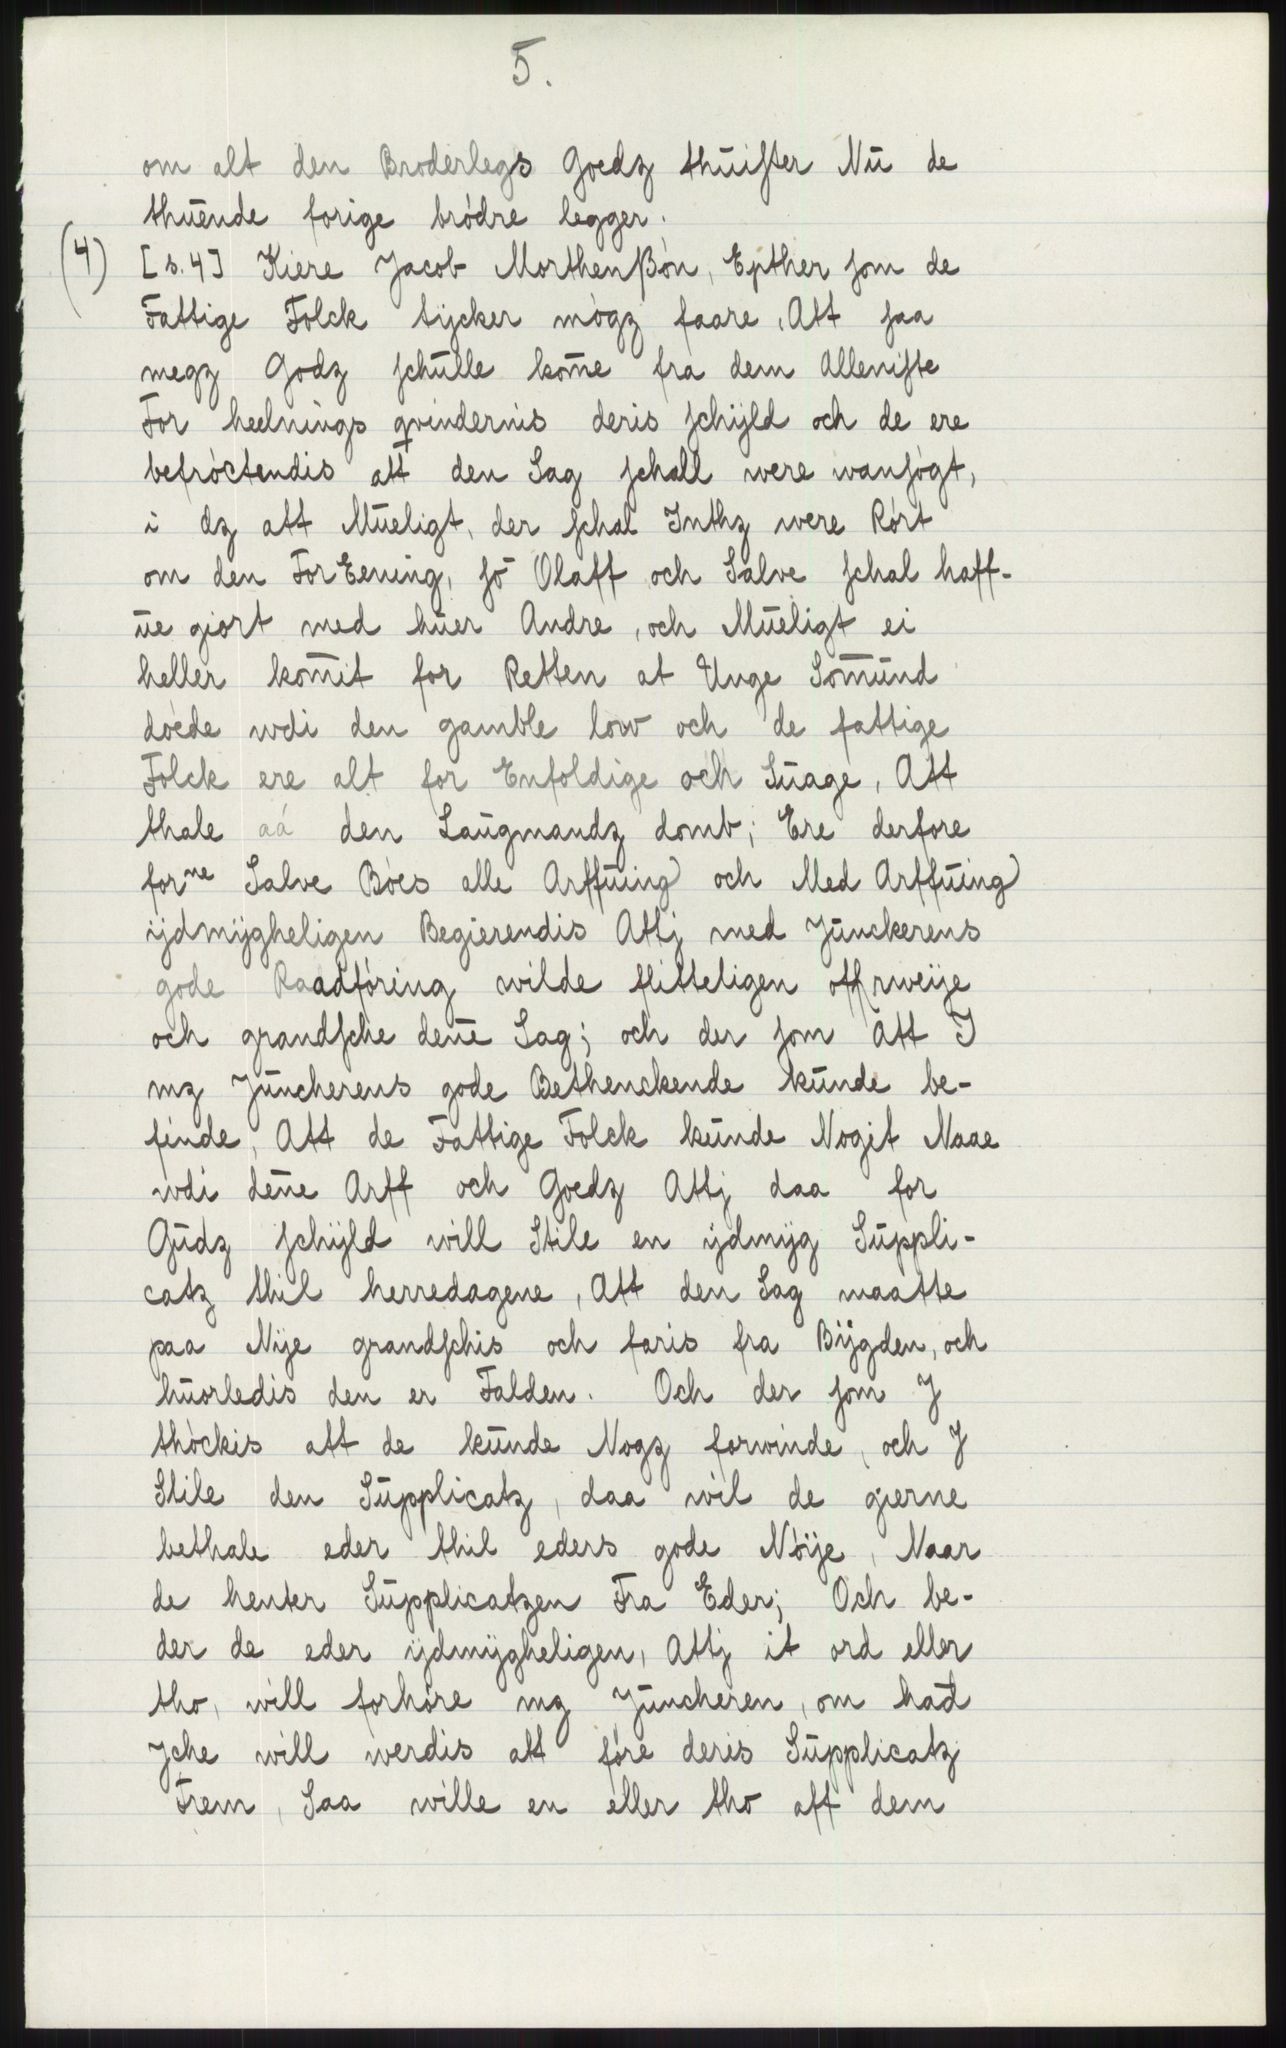 5.
om alt den Broderlegs Goedz thuister Nu de
thuende forige brødre legger.
(4) [s.4] Kiere Jacob Morthenßøn, Epther som de
Fattige Folck tycker møgz faare, Att saa
megz Godz schulle kom̅e fra dem Alleniste
For heelnings qvindernis deris schyld och de ere
befrøctendis att den Sag schall were wansøgt,
i dz att Mueligt, der schal Inthz were Rørt
om den ForEening, so̅ Olaff och Salve schal haff-
ue giort med huer Andre, och Mueligt ei
heller kom̅it for Retten at Unge Som̅und
døede wdi den gamble low och de fattige
Folck ere alt for Enfoldige och Suage, Att
thale aá den Laugmandz domb; Ere derfore
forne Salve Bøes alle Arffuing och Med Arffuing
ydmygheligen Begierendis Attj med Junckerens
gode Raadføring wilde flitteligen offrweije
och grandsche den̅e Sag; och der som Att I
mz Juncherens gode Bethenckende kunde be-
finde, Att de Fattige Folck kunde Nogit Naae
wdi den̅e Arff och Goedz Attj daa for
Gudz schyld will Stile en ydmyg Suppli-
catz thil herredagene, Att den Sag maatte
paa Nije grandschis och faris fra Bygden, och
huorledis den er Falden. Och der som J
thøckis att de kunde Nogz forwinde, och J
Stile den Supplicatz, daa wil de gierne
bethale eder thil eders gode Nøije, Naar
de henter Supplicatzen Fra Eder; Och be-
der de eder ydmygheligen, Attj it ord eller
tho, will forhøre mz Juncheren, om had
Jche will werdis att føre deris Supplicatz
Frem, Saa wille en eller tho aff dem